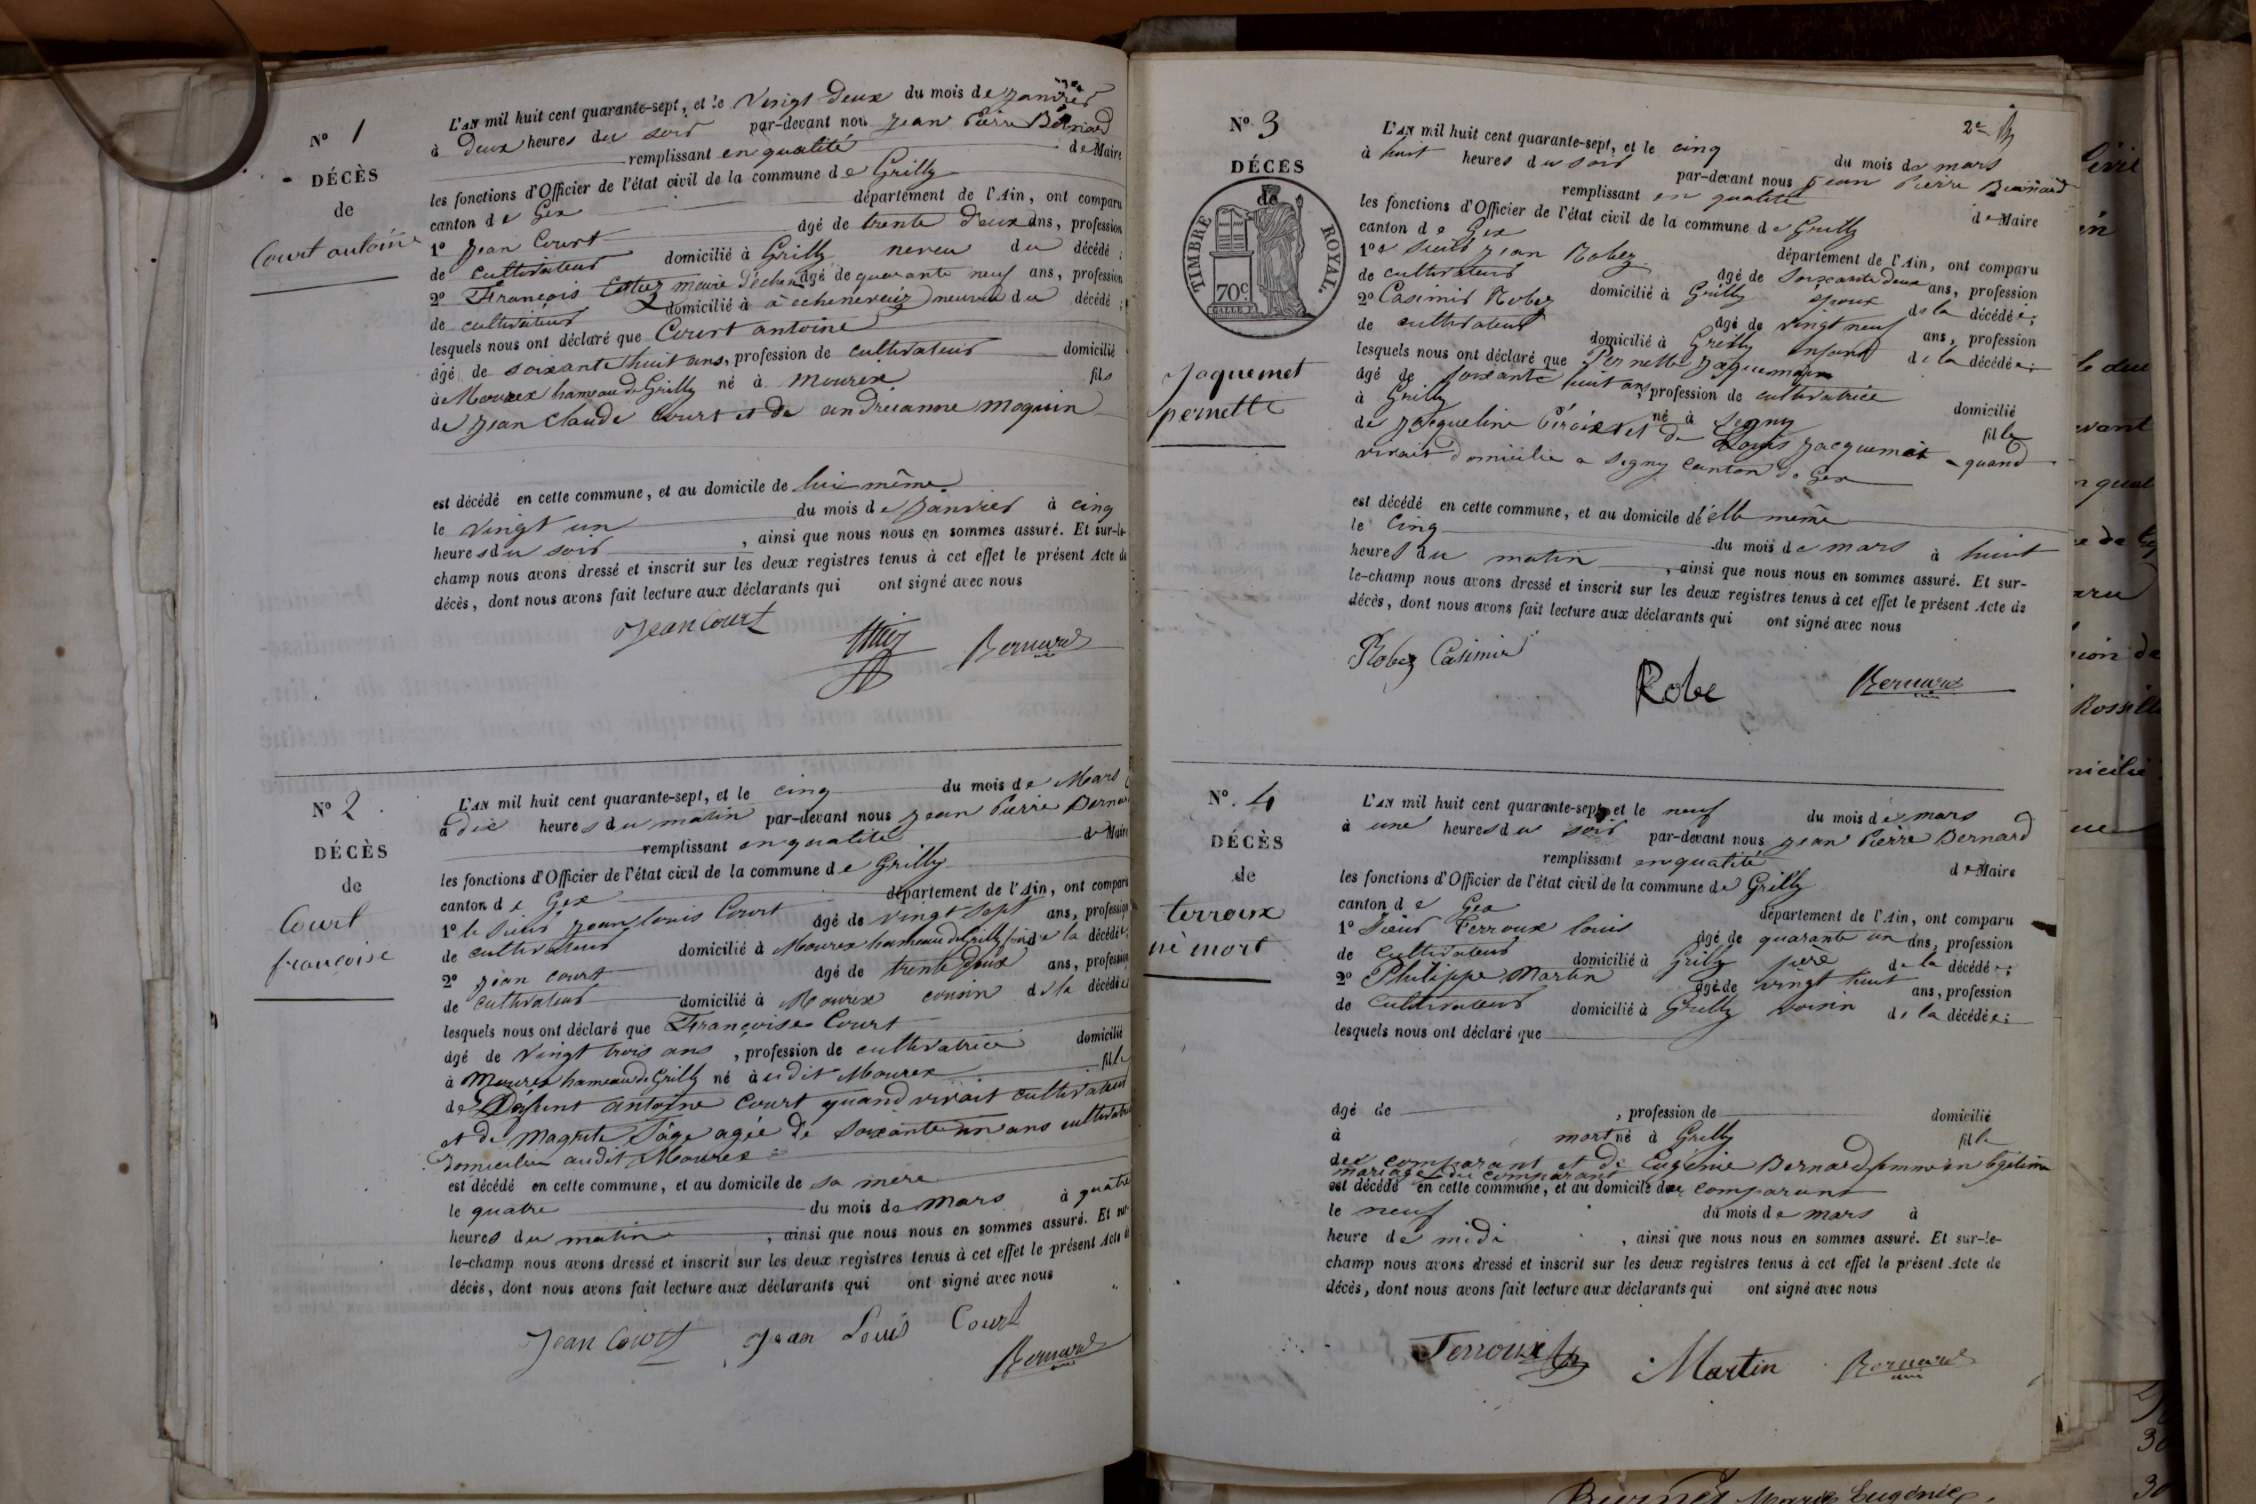 Nº 1
DÉCÈS
de
Court antoine
L'AN mil huit cent quarante-sept, et le Vingt deux du mois de janvier
à deux heures du soir par-devant nou jean Pierre Bernard
remplissant en qualité de Maire
les fonctions d'Officier de l'état civil de la commune de Grilly
canton de Gex département de l'Ain, ont comparu
1º jean Court âgé de trente deux ans, profession
de cultivateur domicilié à Grilly neveu du décédé ;
2º François maire d'échen âgé de quarante neuf ans, profession
de cultivateur domicilié à à écheneveix neuveu du décédé ;
lesquels nous ont déclaré que Court antoine
âgé de soixante huit ans, profession de cultivateur domicilié
à Mourex hameau de Grilly né à mourex fils
de jean Claude Court et de andréanne moquin
est décédé en cette commune, et au domicile de lui même
le vingt un du mois de janvier à cinq
heures du soir , ainsi que nous nous en sommes assuré. Et sur-le-
champ nous avons dressé et inscrit sur les deux registres tenus à cet effet le présent Acte de
décès, dont nous avons fait lecture aux déclarants qui ont signé avec nous
Jean Court
Bernard
Nº 2
DÉCÈS
de
Court
françoise
L'AN mil huit cent quarante-sept, et le cinq du mois de Mars
à dix heures du matin par-devant nous jean Pierre Bernard
remplissant en qualité de Maire
les fonctions d'Officier de l'état civil de la commune de Grilly
canton de Gex département de l'Ain, ont comparu
1º le sieur jean louis Court âgé de vingt sept ans, profession
de cultivateur domicilié à Mourex hameau de Grilly de la décédée
2º jean court âgé de trente deux ans, profession
de cultivateur domicilié à Mourex cousin de la décédée
lesquels nous ont déclaré que Françoise Court
âgé de vingt trois ans , profession de cultivatrice domicilié
à Mourex hameau de Grilly né à udit Mourex fille
de Défunt antoine Court quand vivait cultivateur
et de Magrite Sâge agée de soixante un ans cultivatrice
domiciliée audit Mourex
est décédé en cette commune, et au domicile de sa mère
le quatre du mois de mars à quatre
heures du matin , ainsi que nous nous en sommes assuré. Et sur-
le-champ nous avons dressé et inscrit sur les deux registres tenus à cet effet le présent Acte de
décès, dont nous avons fait lecture aux déclarants qui ont signé avec nous
Jean Court Jean Louis Court
Bernard
2e
Nº 3
DÉCÈS
de
TIMBRE ROYAL.
70c
Jaquemet
pernette
L'AN mil huit cent quarante-sept, et le cinq du mois de mars
à huit heures du soir par-devant nous jean Pierre Bernard
remplissant en qualité de Maire
les fonctions d'Officier de l'état civil de la commune de Grilly
canton de Gex département de l'Ain, ont comparu
1º sieur jean Robez âgé de soixante deux ans, profession
de cultivateur domicilié à Grilly époux de la décédée;
2º Casimir Robez âgé de vingt neuf ans, profession
de cultivateur domicilié à Grilly enfant de la décédée;
lesquels nous ont déclaré que Pernette
âgé de soixante huit ans, profession de cultivatrice domicilié
à Grilly né à Segny fille
de jacqueline et de Louis jacquemet quand
vivait domicilié a segny canton de Gex
est décédé en cette commune, et au domicile de elle même
le Cinq du mois de mars à huit
heures du matin , ainsi que nous nous en sommes assuré. Et sur-
le-champ nous avons dressé et inscrit sur les deux registres tenus à cet effet le présent Acte de
décès, dont nous avons fait lecture aux déclarants qui ont signé avec nous
Robez Casimir
Robe
Bernard
Nº. 4
DÉCÈS
de
terroux
né mort
L'AN mil huit cent quarante-sept, et le neuf du mois de mars
à une heures du soir par-devant nous jean Pierre Bernard
remplissant en qualité de Maire
les fonctions d'Officier de l'état civil de la commune de Grilly
canton de Gex département de l'Ain, ont comparu
1º Sieur Terroux louis âgé de quarante un ans, profession
de cultivateur domicilié à Grilly père de la décédée;
2º Philippe Martin âgé de vingt huit ans, profession
de cultivateur domicilié à Grilly voisin de la décédée;
lesquels nous ont déclaré que
âgé de , profession de domicilié
à mort né à Grilly fille
des comparant et de Eugénie Bernard femme en légitime
mariage du comparant
est décédé en cette commune, et au domicile du comparant
le neuf du mois de mars à
heure de midi , ainsi que nous nous en sommes assuré. Et sur-le-
champ nous avons dressé et inscrit sur les deux registres tenus à cet effet le présent Acte de
décès, dont nous avons fait lecture aux déclarants qui ont signé avec nous
Terroux
Martin
Bernard